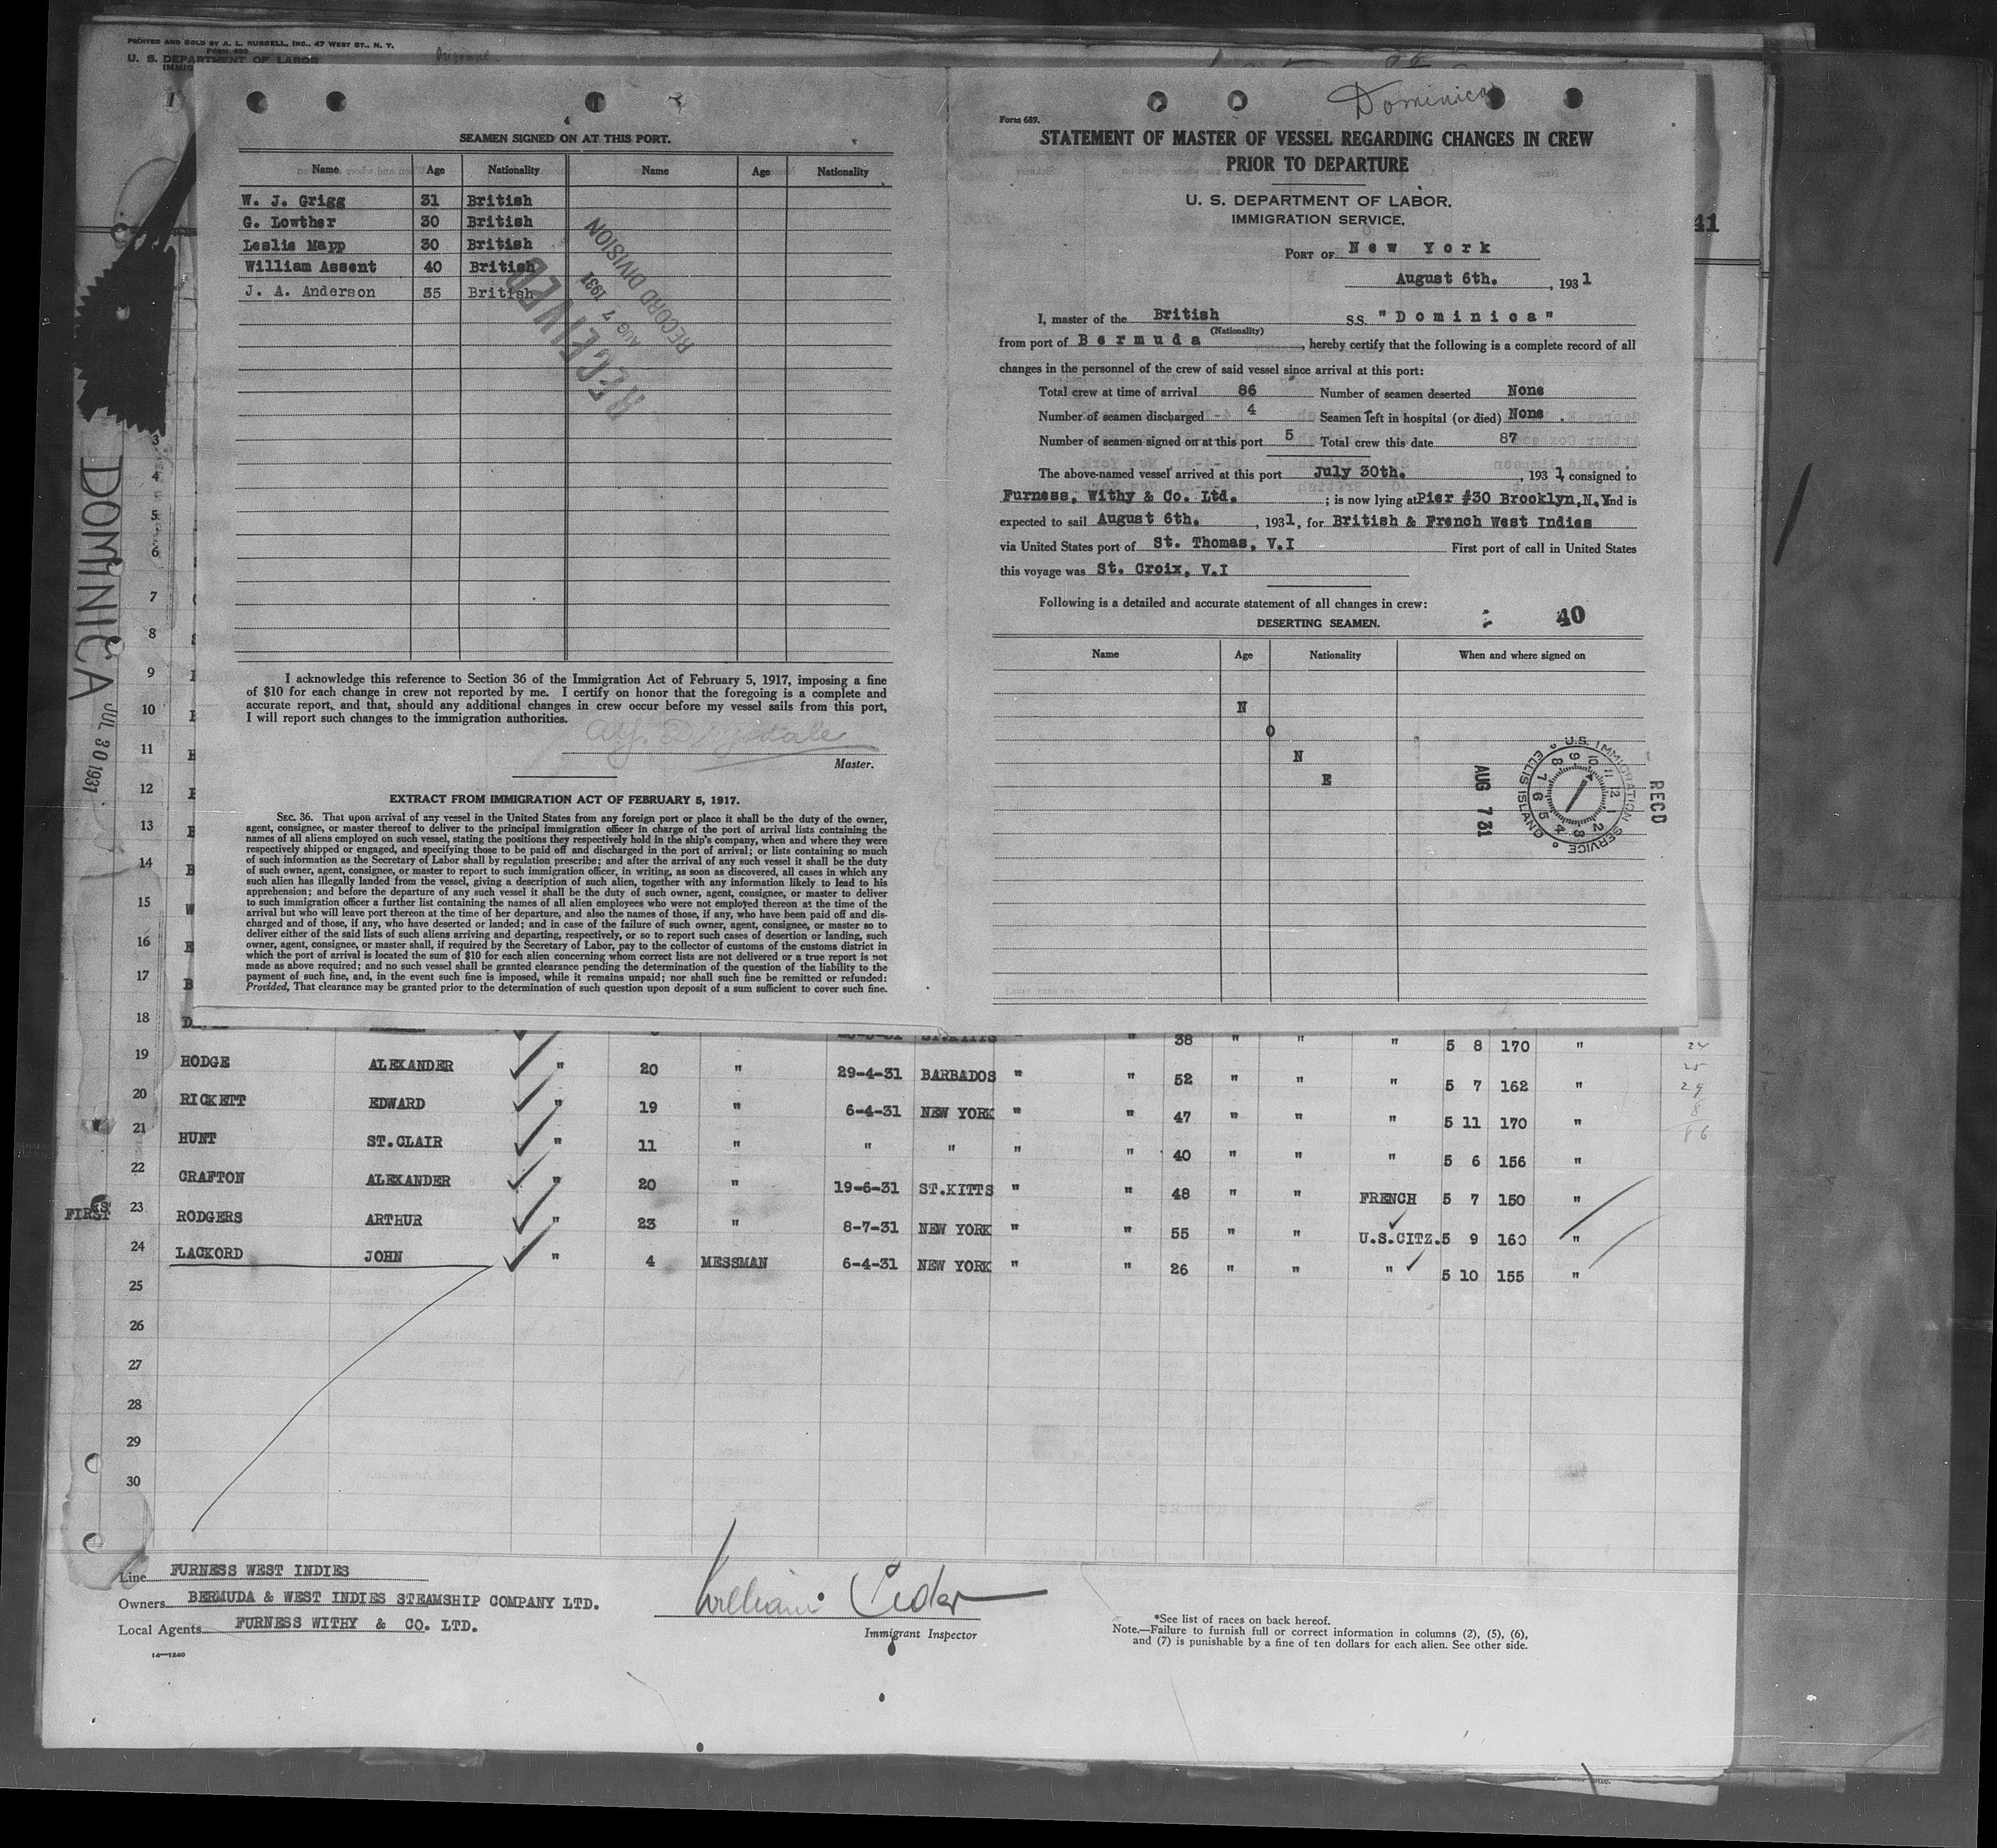 PRINTED AND SOLD BY A. L. RUSSELL, INC., 47 WEST ST., N. Y.
FORM 689
U. S. DEPARTMENT OF LABOR
Original
4
SEAMEN SIGNED ON AT THIS PORT.
Name Age Nationality Name Age Nationality
W. J. Grigg 31 British
G. Lowther 30 British
Leslie Mapp 30 British
William Assent 40 British
J. A. Anderson 35 British
RECEIVED
AUG 7 1931
RECORD DIVISION
I acknowledge this reference to Section 36 of the Immigration Act of February 5, 1917, imposing a fine
of $10 for each change in crew not reported by me. I certify on honor that the foregoing is a complete and
accurate report, and that, should any additional changes in crew occur before my vessel sails from this port,
I will report such changes to the immigration authorities.
Master.
EXTRACT FROM IMMIGRATION ACT OF FEBRUARY 5, 1917.
SEC. 36. That upon arrival of any vessel in the United States from any foreign port or place it shall be the duty of the owner,
agent, consignee, or master thereof to deliver to the principal immigration officer in charge of the port of arrival lists containing the
names of all aliens employed on such vessel, stating the positions they respectively hold in the ship's company, when and where they were
respectively shipped or engaged, and specifying those to be paid off and discharged in the port of arrival; or lists containing so much
of such information as the Secretary of Labor shall by regulation prescribe; and after the arrival of any such vessel it shall be the duty
of such owner, agent, consignee, or master to report to such immigration officer, in writing, as soon as discovered, all cases in which any
such alien has illegally landed from the vessel, giving a description of such alien, together with any information likely to lead to his
apprehension; and before the departure of any such vessel it shall be the duty of such owner, agent, consignee, or master to deliver
to such immigration officer a further list containing the names of all alien employees who were not employed thereon at the time of the
arrival but who will leave port thereon at the time of her departure, and also the names of those, if any, who have been paid off and dis-
charged and of those, if any, who have deserted or landed; and in case of the failure of such owner, agent, consignee, or master so to
deliver either of the said lists of such aliens arriving and departing, respectively, or so to report such cases of desertion or landing, such
owner, agent, consignee, or master shall, if required by the Secretary of Labor, pay to the collector of customs of the customs district in
which the port of arrival is located the sum of $10 for each alien concerning whom correct lists are not delivered or a true report is not
made as above required; and no such vessel shall be granted clearance pending the determination of the question of the liability to the
payment of such fine, and, in the event such fine is imposed, while it remains unpaid; nor shall such fine be remitted or refunded:
Provided, That clearance may be granted prior to the determination of such question upon deposit of a sum sufficient to cover such fine.
Dominica
Form 689.
STATEMENT OF MASTER OF VESSEL REGARDING CHANGES IN CREW
PRIOR TO DEPARTURE
U. S. DEPARTMENT OF LABOR.
IMMIGRATION SERVICE.
PORT OF New York
August 6th., 1931
I, master of the British SS. "Dominica"
(Nationality)
from port of Bermuda, hereby certify that the following is a complete record of all
changes in the personnel of the crew of said vessel since arrival at this port:
Total crew at time of arrival 86 Number of seamen deserted None
Number of seamen discharged 4 Seamen left in hospital (or died) None.
Number of seamen signed on at this port 5 Total crew this date 87
The above-named vessel arrived at this port July 30th., 1931, consigned to
Furness, Withy & Co. Ltd. ; is now lying at Pier #30 Brooklyn,N.Y and is
expected to sail August 6th., 1931, for British & French West Indies
via United States port of St. Thomas, V.I First port of call in United States
this voyage was St. Croix, V.I
Following is a detailed and accurate statement of all changes in crew:
40
DESERTING SEAMEN.
Name Age Nationality When and where signed on
N
O
N
E
U.S. IMMIGRATION SERVICE ELLIS ISLAND
AUG 7 31
RECD
41
DOMINICA
JUL 30 1931
3
4
5
6
7
8
9
10
11
12
13
14
15
16
17
18 38 " " " 5 8 170 "
19 HODGE ALEXANDER " 20 " 29-4-31 BARBADOS " " 52 " " " 5 7 162 "
20 RICKETT EDWARD " 19 " 6-4-31 NEW YORK " " 47 " " " 5 11 170 "
21 HUNT ST.CLAIR " 11 " " " " " 40 " " " 5 6 156 "
22 CRAFTON ALEXANDER " 20 " 19-6-31 ST.KITTS " " 48 " " FRENCH 5 7 150 "
23 RODGERS ARTHUR " 23 " 8-7-31 NEW YORK " " 55 " " U.S.CITZ. 5 9 160 "
FIRST
24 LACKORD JOHN " 4 MESSMAN 6-4-31 NEW YORK " " 26 " " " 5 10 155 "
25
26
27
28
29
30
Line FURNESS WEST INDIES
Owners BERMUDA & WEST INDIES STEAMSHIP COMPANY LTD.
Local Agents FURNESS WITHY & CO. LTD.
14—1240
Immigrant Inspector
*See list of races on back hereof.
Note.—Failure to furnish full or correct information in columns (2), (5), (6),
and (7) is punishable by a fine of ten dollars for each alien. See other side.